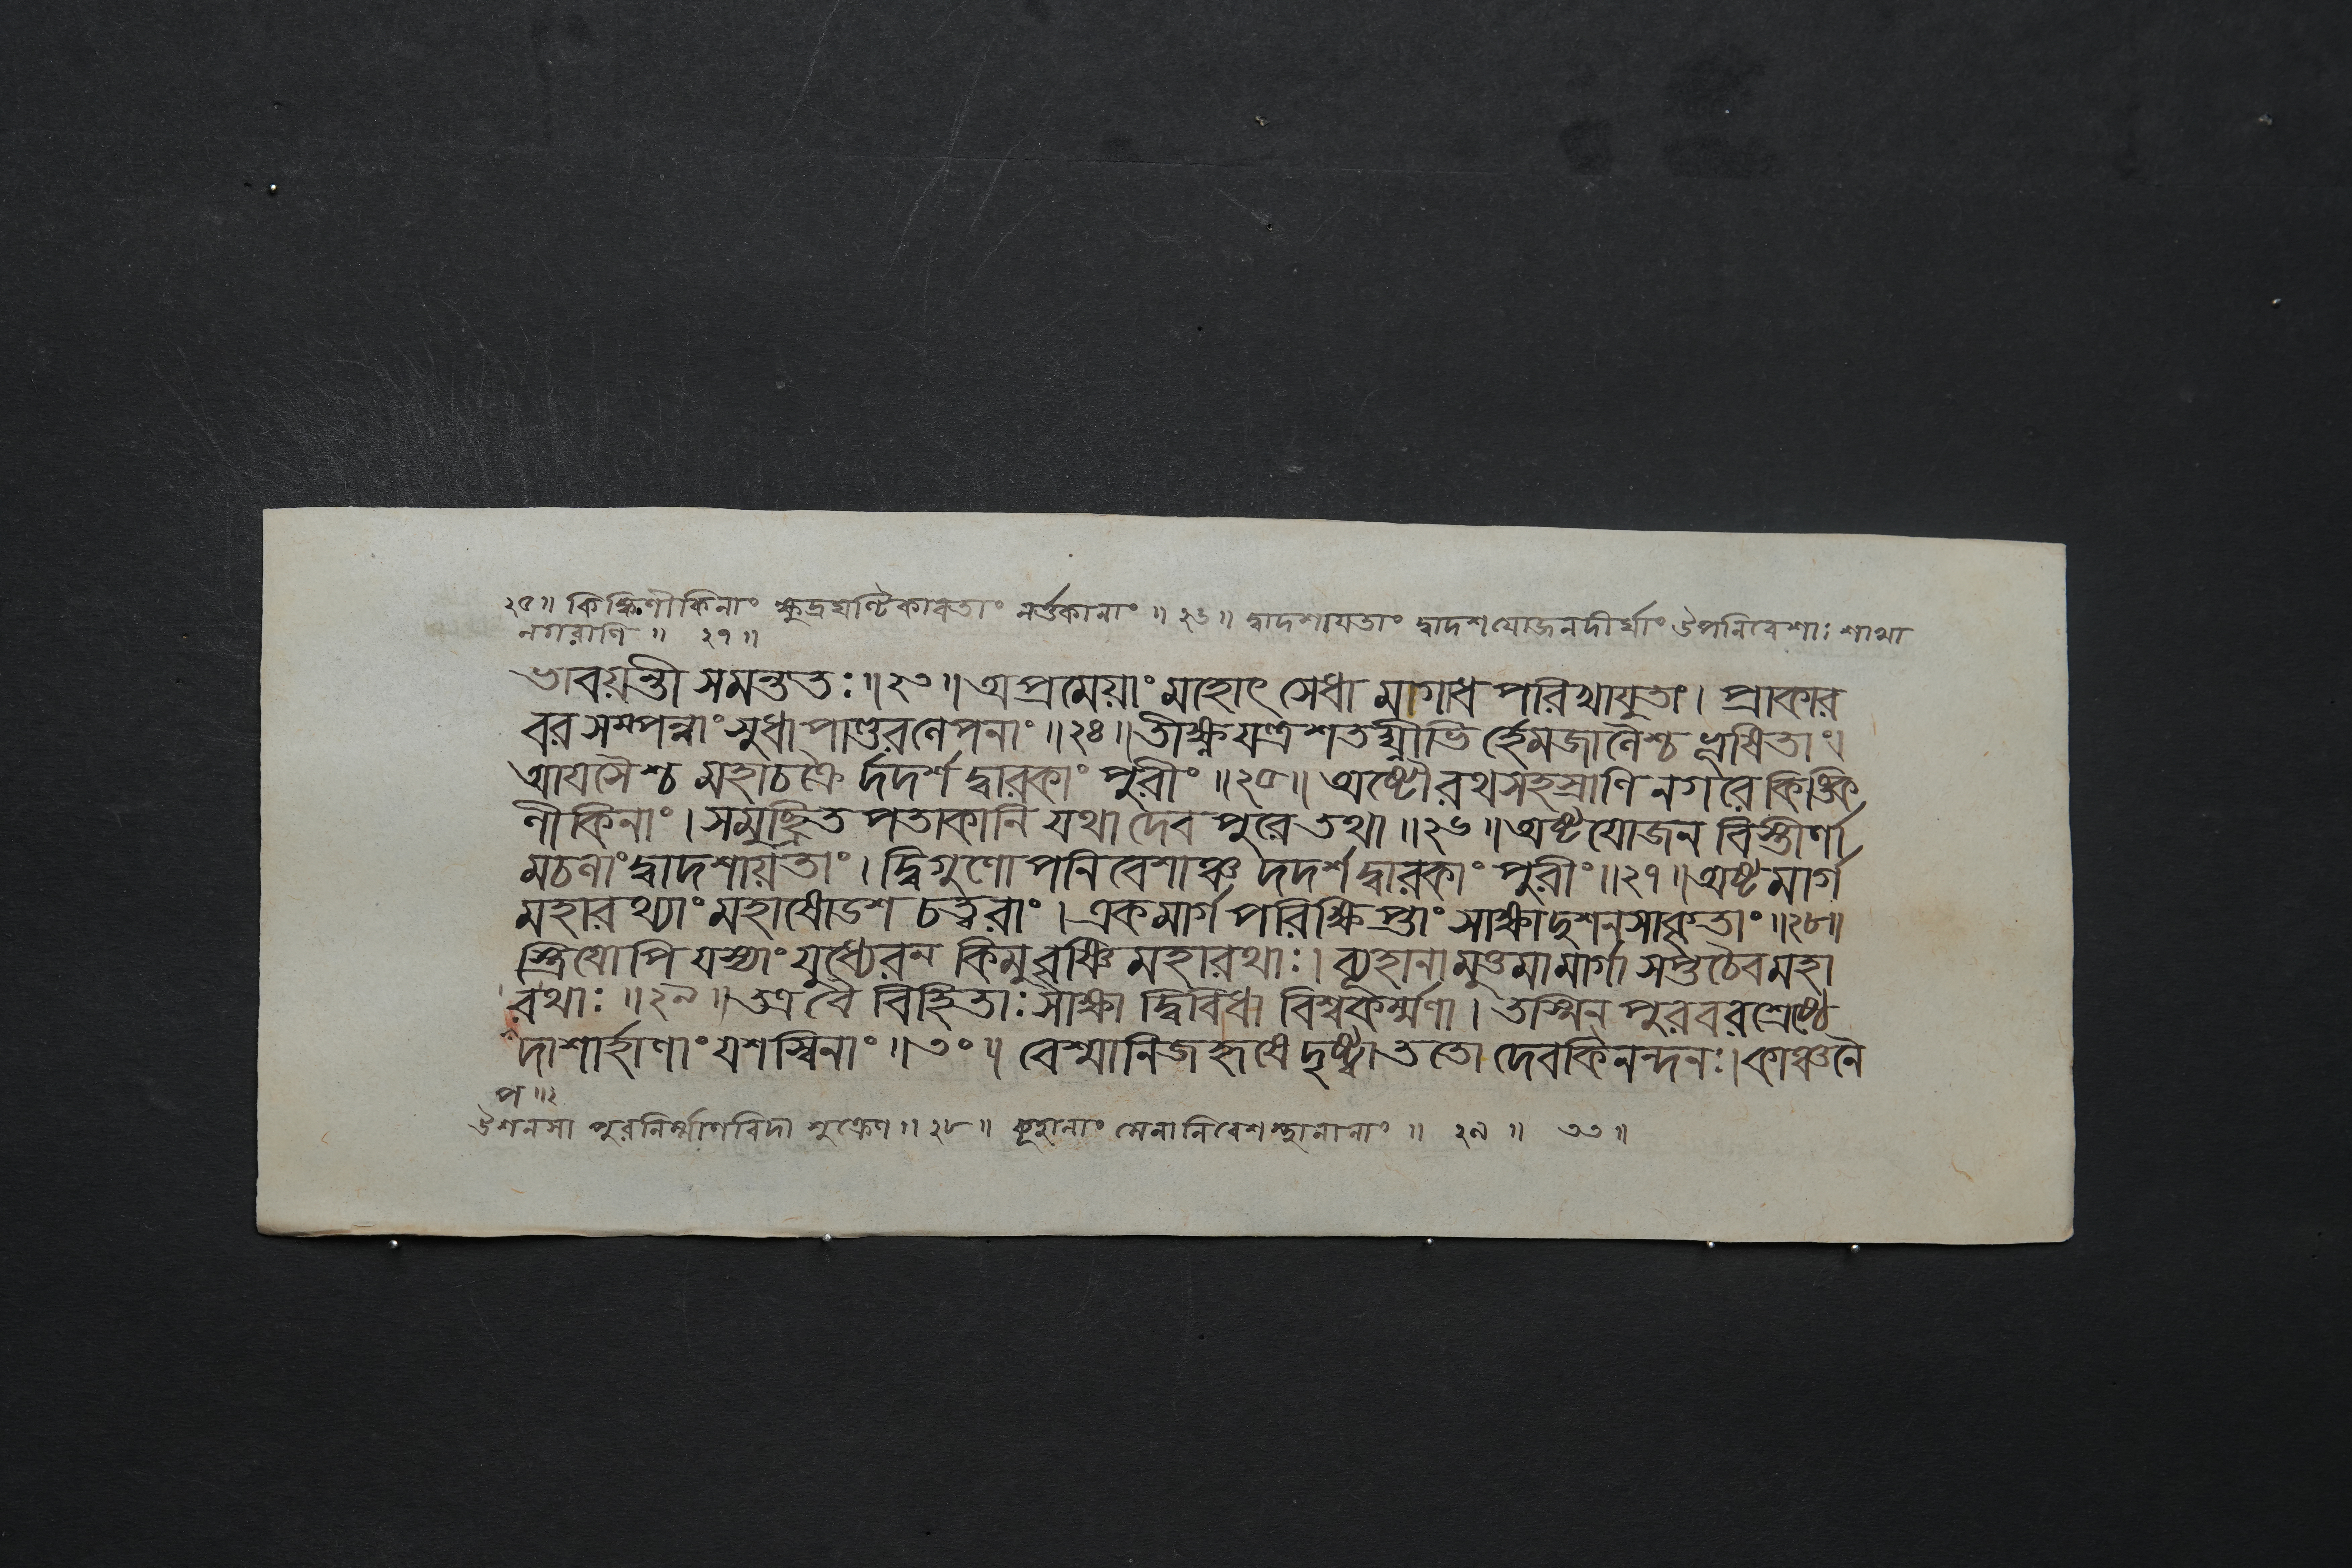 ২৫॥ কিঙ্কিণীকিনাং ক্ষুদ্রঘণ্টিকাবতাং নর্ত্তকানাং ॥ ২৬॥ দ্বাদশায়তাং দ্বাদশযোজনদীর্ঘাং উপনিবেশাঃ শাখা
নগরাণি ॥ ২৭॥
ভাবয়ন্তী সমন্ততঃ॥২৩॥অপ্রমেয়াং মহোৎসেধা মাগাধ পরিখাযুতাং। প্রাকার
বর সম্পন্নাং সুধা পাণ্ডুরলেপনাং॥২৪॥তীক্ষ্ণযন্ত্রশতঘ্নীভি র্হেমজালৈশ্চ ভূষিতাং।
আয়সৈশ্চ মহাচক্রৈ র্দদর্শ দ্বারকাং পুরীং॥২৫॥ অষ্টৌরথসহস্রাণি নগরে কিঙ্কি
ণীকিনাং। সমুচ্ছ্রিত পতাকানি যথা দেব পুরে তথা॥২৬॥অষ্টযোজন বিস্তীর্ণা
মচলাং দ্বাদশায়তাং। দ্বিগুণোপনিবেশাঞ্চ দদর্শ দ্বারকাং পুরীং॥২৭॥অষ্টমার্গ
মহারথ্যাং মহাষোডশ চত্বরাং। একমার্গ পরিক্ষিপ্তাং সাক্ষাদুশনসাকৃতাং॥২৮॥
স্ত্রিয়োপি যস্যাং যুধ্যেরন কিমু বৃষ্ণি মহারথাঃ। ব্যূহানামুত্তমামার্গা সপ্তচৈবমহা
রথাঃ॥২৯॥তত্র বৈ বিহিতাঃ সাক্ষা দ্বিবিধা বিশ্বকর্ম্মণা। তস্মিন পুরবরশ্রেষ্ঠে
দাশার্হাণাং যশস্বিনাং॥৩০॥ বেশ্মানিজহৃষে দৃষ্ট্বা ততো দেবকিনন্দনঃ। কাঞ্চনৈ
প॥২
উশনসা পুরনির্ম্মাণবিদা শুক্রেণ॥২৮॥ ব্যূহানাং সেনানিবেশস্থানানাং॥ ২৯॥ ৩৩॥